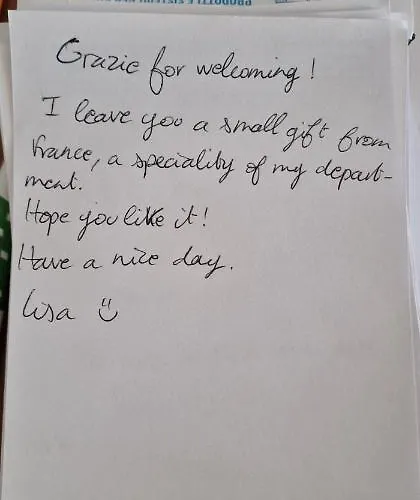 Grazie for welcoming !
I leave you a small gift from
france, a speciality of my depart-
ment.
Hope you like it!
Have a nice day.
Lisa